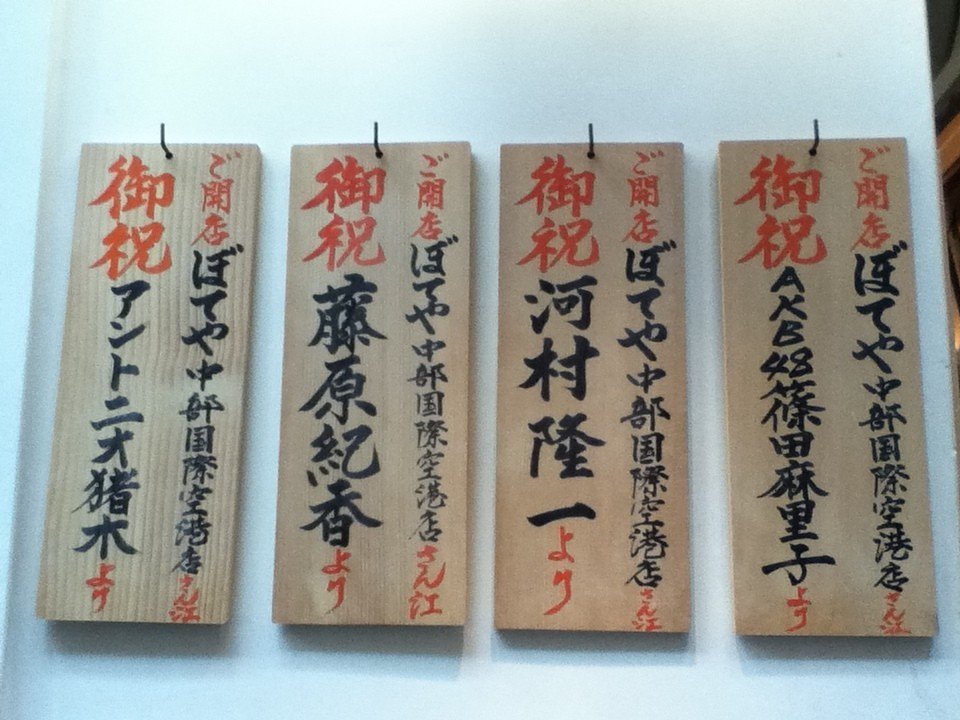 ご開店
ぼてや中部国際空港店さん江
御祝
藤原紀香より
ご開店
ぼてや中部国際空港店さん江
御祝
アントニオ猪木より
ご開店
ぼてや中部国際空港店さん江
御祝
河村隆一より
ご開店
ぼてや中部国際空港店さん江
御祝
AKB48篠田麻里子より